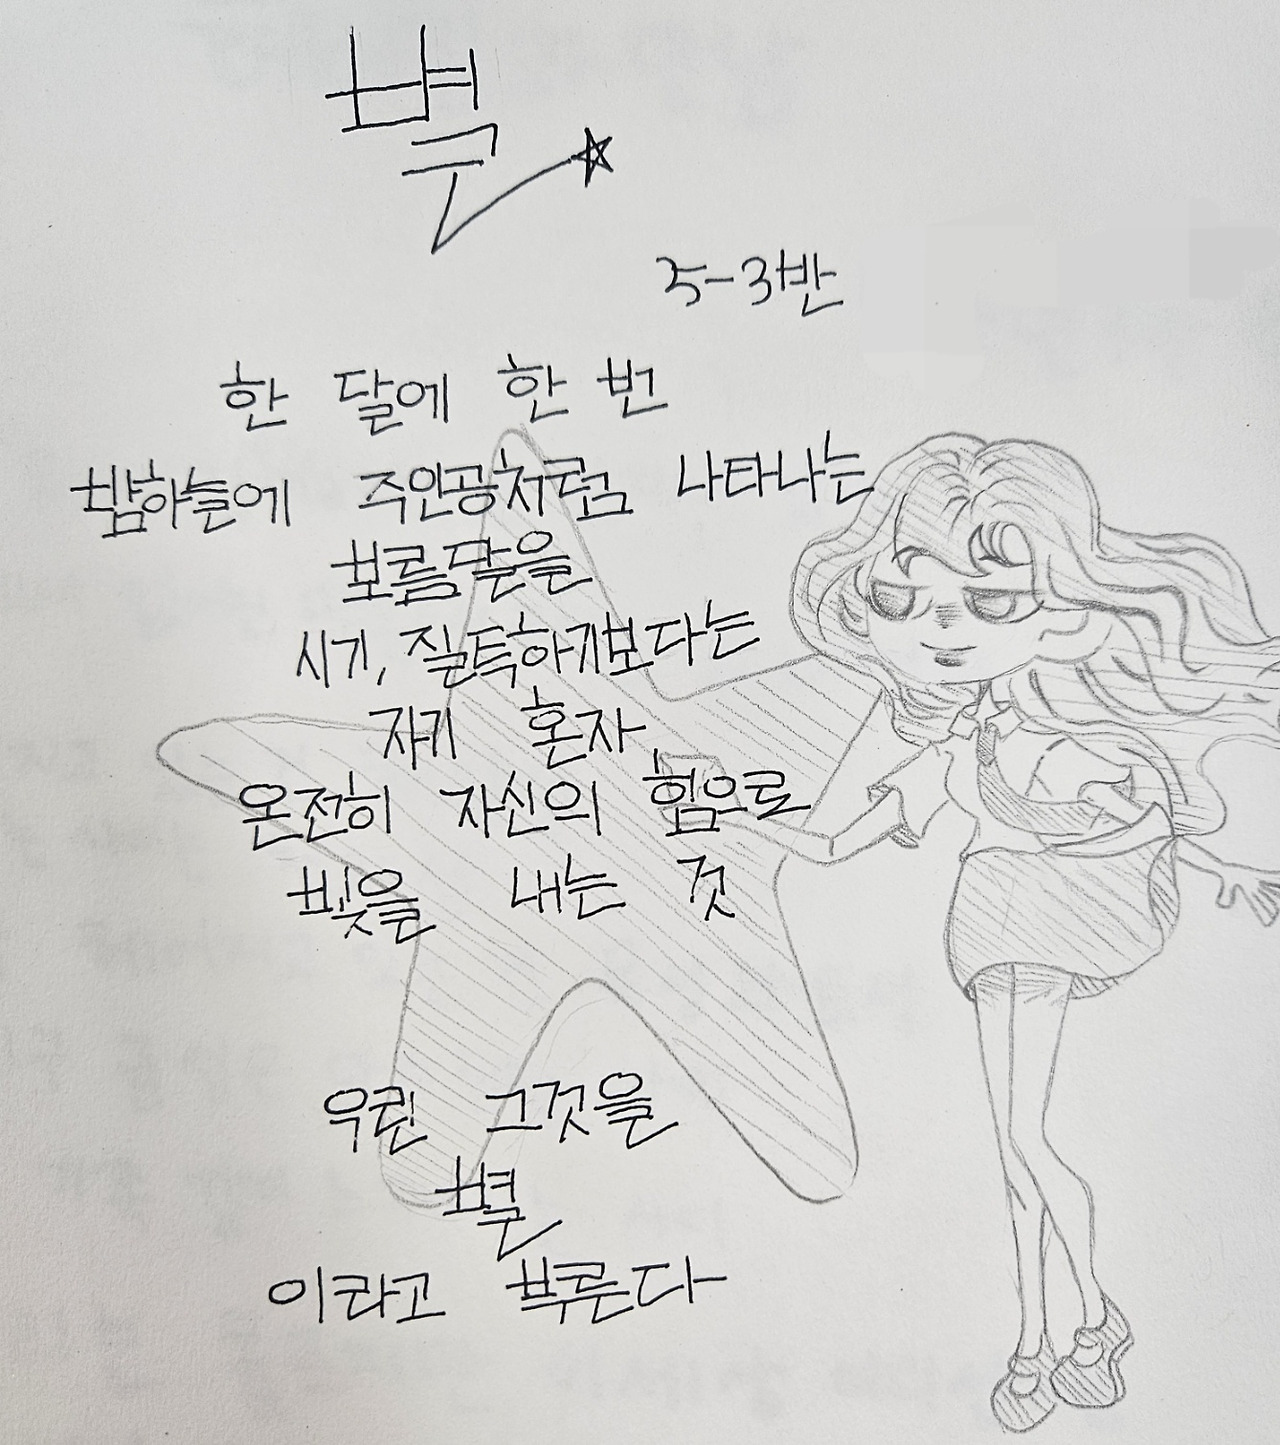 별
5-3반
한 달에 한 번
밤하늘에 주인공처럼 나타나는
보름달을
시기, 질투하기보다는
자기 혼자
온전히 자신의 힘으로
빛을 내는 것
우린 그것을
별
이라고 부른다